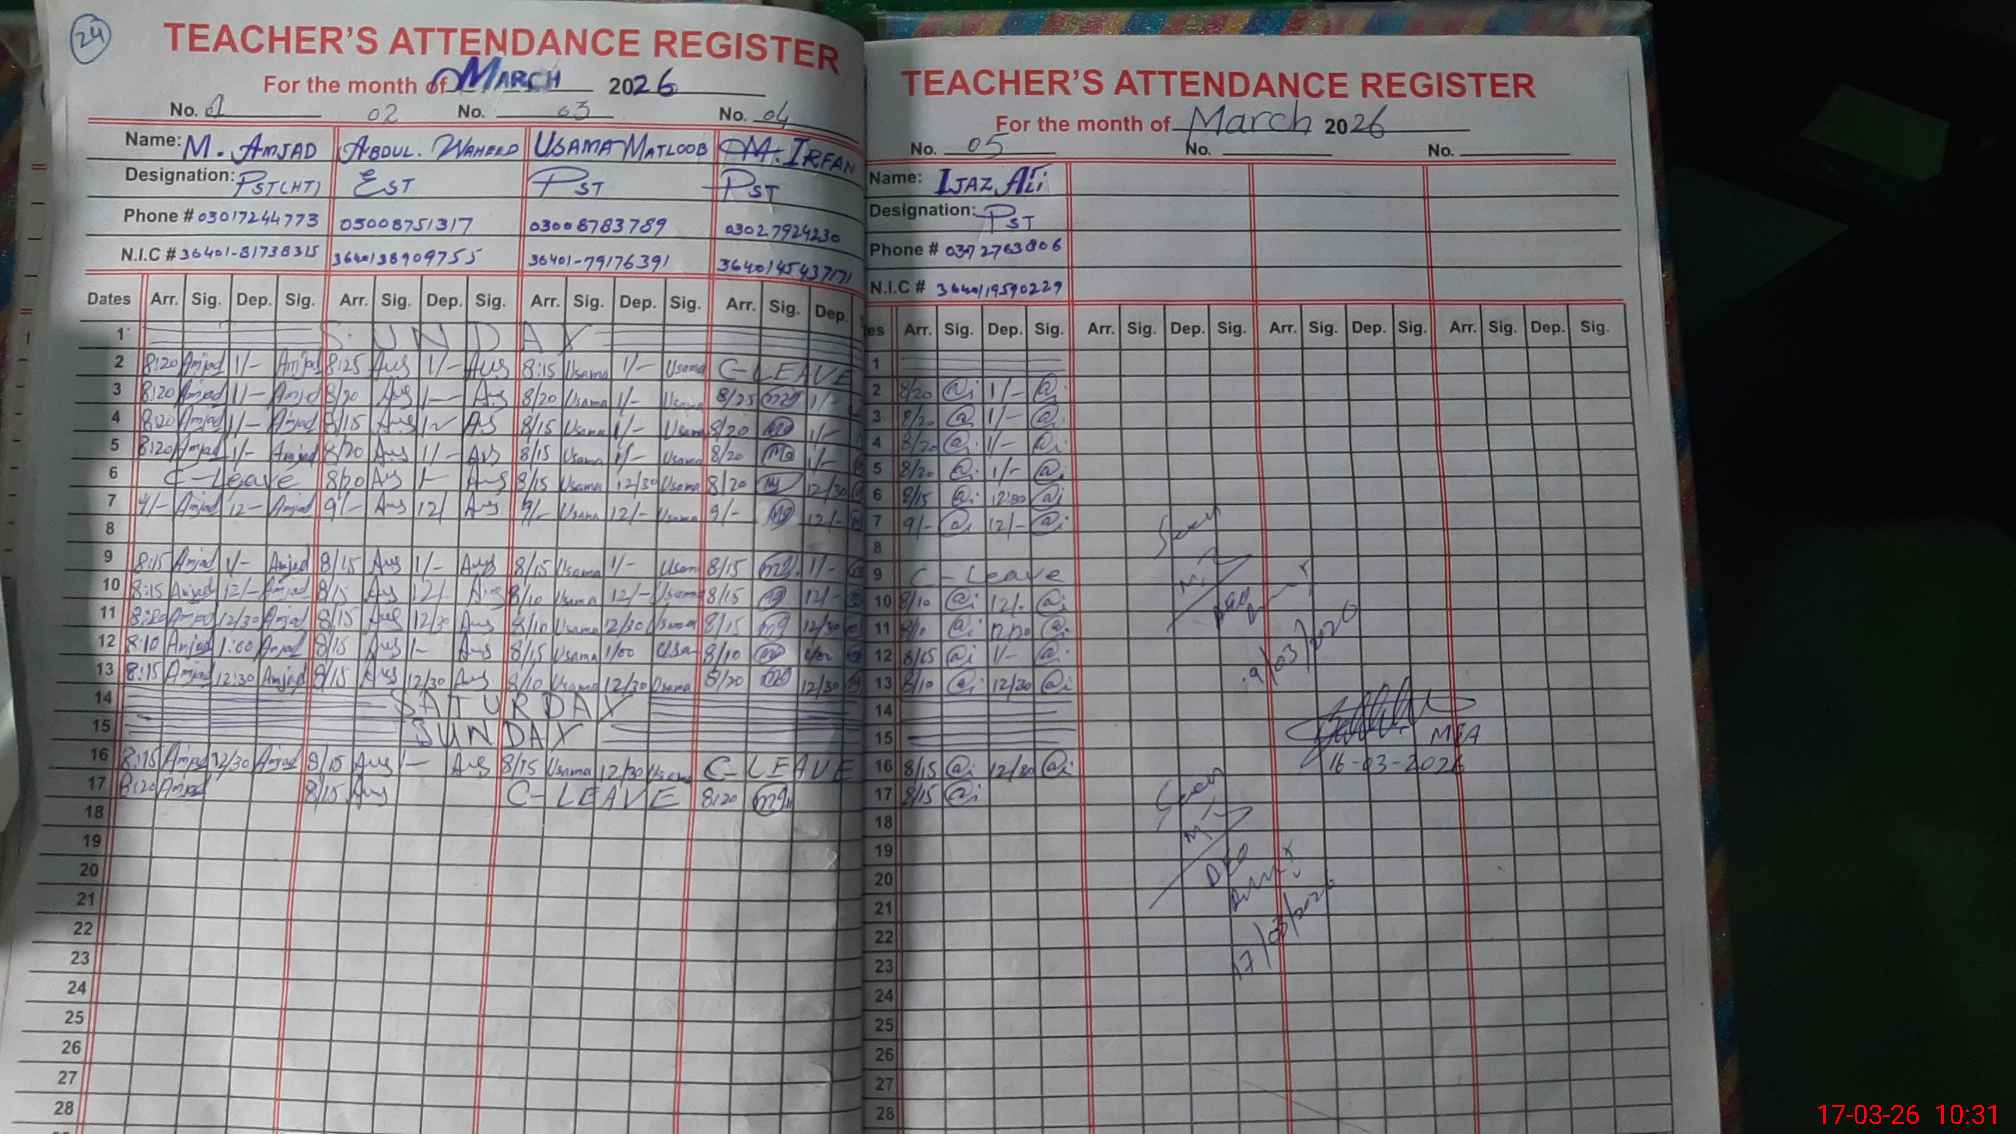 24
TEACHER'S ATTENDANCE REGISTER
For the month of MARCH 2026
No. 01 02 No. 03 No. 04
Name: M. AMJAD ABDUL. WAHEED USAMA MATLOOB M. IRFAN
Designation: PST(HT) EST PST PST
Phone # 03017244773 03008751317 03008783789 03027924230
N.I.C # 36401-81738315 3640138909755 36401-79176391 3640145437171
Dates Arr. Sig. Dep. Sig. Arr. Sig. Dep. Sig. Arr. Sig. Dep. Sig. Arr. Sig. Dep.
1 SUNDAY
2 8:20 Amjad 1/- Amjad 8:25 1/- 8:15 Usama 1/- Usama C-LEAVE
3 8:20 Amjad 1/- Amjad 8/20 1- 8/20 Usama 1/- Usama 8/25 1/-
4 8:20 Amjad 1/- Amjad 8/15 8/15 Usama 1/- Usama 8/20 1/-
5 8:20 Amjad 1/- Amjad 8/20 1/- 8/15 Usama 1/- Usama 8/20 1/-
6 C-Leave 8/20 1- 8/15 Usama 12/30 Usama 8/20 12/30
7 9/- Amjad 12- Amjad 9/- 12/ 9/- Usama 12/- Usama 9/- 12/-
8
9 8:15 Amjad 1/- Amjad 8/15 1/- 8/15 Usama 1/- Usam 8/15 1/-
10 8:15 Amjad 12/- Amjad 8/15 12/- 8/10 Usama 12/- Usama 8/15 12/-
11 8:20 Amjad 12/30 Amjad 8/15 12/30 8/10 Usama 12/30 Usama 8/15 12/30
12 8:10 Amjad 1:00 Amjad 8/15 1- 8/15 Usama 1/00 Usama 8/10 1/00
13 8:15 Amjad 12:30 Amjad 8/15 12/30 8/10 Usama 12/30 Usama 8/20 12/30
14 SATURDAY
15 SUNDAY
16 8:15 Amjad 12/30 Amjad 8/15 1- 8/15 Usama 12/30 Usama C-LEAVE
17 8:20 Amjad 8/15 C-LEAVE 8:20
18
19
20
21
22
23
24
25
26
27
28
TEACHER'S ATTENDANCE REGISTER
For the month of March 2026
No. 05 No. No.
Name: IJAZ ALi
Designation: PST
Phone # 0372763806
N.I.C # 3640119590229
es Arr. Sig. Dep. Sig. Arr. Sig. Dep. Sig. Arr. Sig. Dep. Sig. Arr. Sig. Dep. Sig.
1
2 8/20 @i 1/- @i
3 8/20 @i 1/- @i
4 8/20 @i 1/- @i
5 8/20 @i 1/- @i
6 8/15 @i 12:30 @i
7 9/- @i 12/- @i
8
9 C-Leave
10 8/10 @i 12/- @i
11 8/10 @i 12/30 @i
12 8/15 @i 1/- @i
13 8/10 @i 12/30 @i
14
15
16 8/15 @i 12/30 @i
17 8/15 @i
18
19
20
21
22
23
24
25
26
27
28
Seen
MEA
16-03-2026
Seen
17/03/2026
17-03-26 10:31